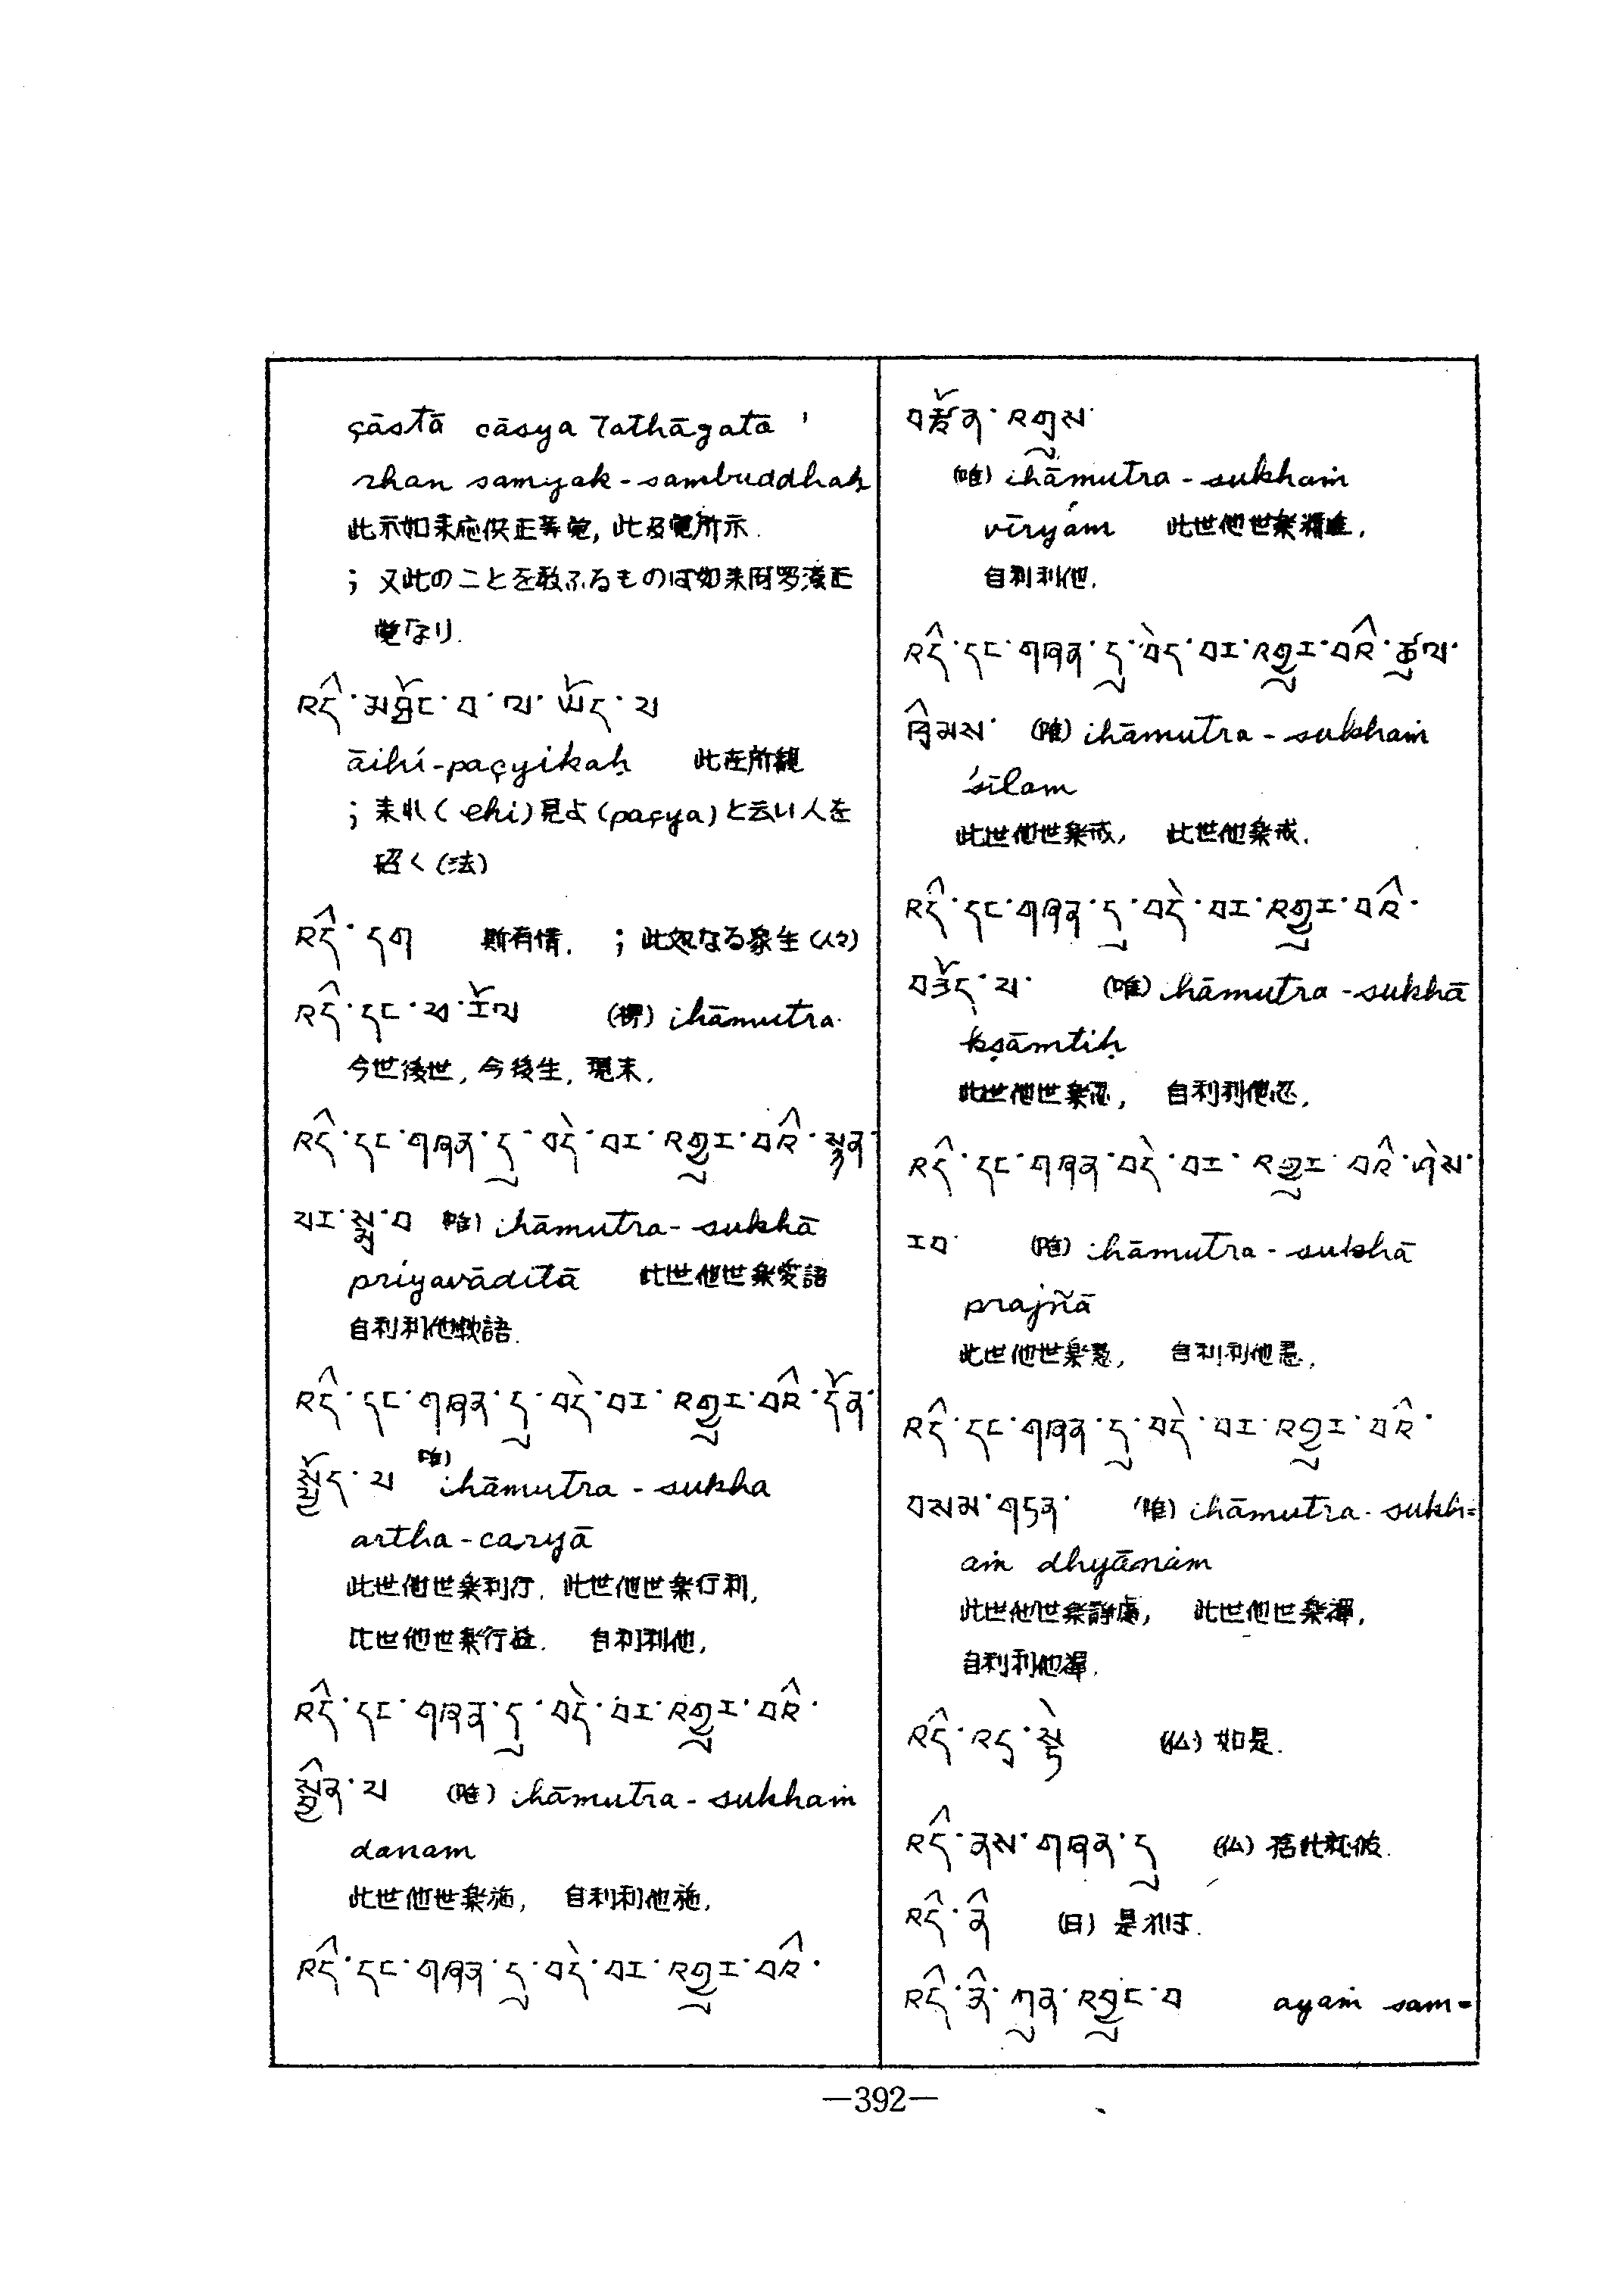 çāstā cāsya Tathāgatā '
rhan samyak-sambuddhaḥ
此示如来応供正等覚, 此及覚所示.
; 又此のことを教ふるものは如来阿羅漢正
覚なり.
འདི་མཐོང་བ་ལ་ཡོད་པ
āihi-paçyikaḥ 此在所観
; 来れ (ehi) 見よ (paçya) と云い人を
招く (法)
འདི་དག 斯有情. ; 此処なる衆生 (人々)
འདི་དང་ཕ་རོལ (楞) ihāmutra.
今世後世, 今後生, 現末,
འདི་དང་གཞན་དུ་བདེ་བར་འགྱུར་བའི་སྙན་
པར་སྨྲ་བ (唯) ihāmutra-sukhā
priyavāditā 此世他世楽愛語
自利利他軟語.
འདི་དང་གཞན་དུ་བདེ་བར་འགྱུར་བའི་དོན་
སྤྱོད་པ (唯) ihāmutra-sukha
artha-caryā
此世他世楽利行. 此世他世楽行利,
此世他世楽行益. 自利利他,
འདི་དང་གཞན་དུ་བདེ་བར་འགྱུར་བའི་
སྦྱིན་པ (唯) ihāmutra-sukhaṁ
danam
此世他世楽施, 自利利他施,
འདི་དང་གཞན་དུ་བདེ་བར་འགྱུར་བའི་
བརྩོན་འགྲུས་
(唯) ihāmutra-sukhaṁ
vīryám 此世他世楽精進,
自利利他,
འདི་དང་གཞན་དུ་བེད་བར་འགྱུར་བའི་ཚུལ་
ཁྲིམས་ (唯) ihāmutra-sukhaṁ
śīlam
此世他世楽戒, 此世他楽戒.
འདི་དང་གཞན་དུ་བདེ་བར་འགྱུར་བའི་
བཟོད་པ་ (唯) ihāmutra-sukhā
kṣāmtiḥ
此世他世楽忍, 自利利他忍,
འདི་དང་གཞན་བདེ་བར་འགྱུར་བའི་ཤེས་
རབ་ (唯) ihāmutra-sukhā
prajñā
此世他世楽慧, 自利利他慧,
འདི་དང་གཞན་དུ་བདེ་བར་འགྱུར་བའི་
བསམ་གཏན་ (唯) ihāmutra-sukh=
aṁ dhyānam
此世他世楽静慮, 此世他世楽禪,
自利利他禪.
འདི་འདྲ་སྟེ (仏) 如是.
འདི་ནས་གཞན་དུ (仏) 捨此就彼.
འདི་ནི (日) 是れは.
འདི་ནི་ཀུན་འབྱུང་བ ayaṁ sam=
—392—